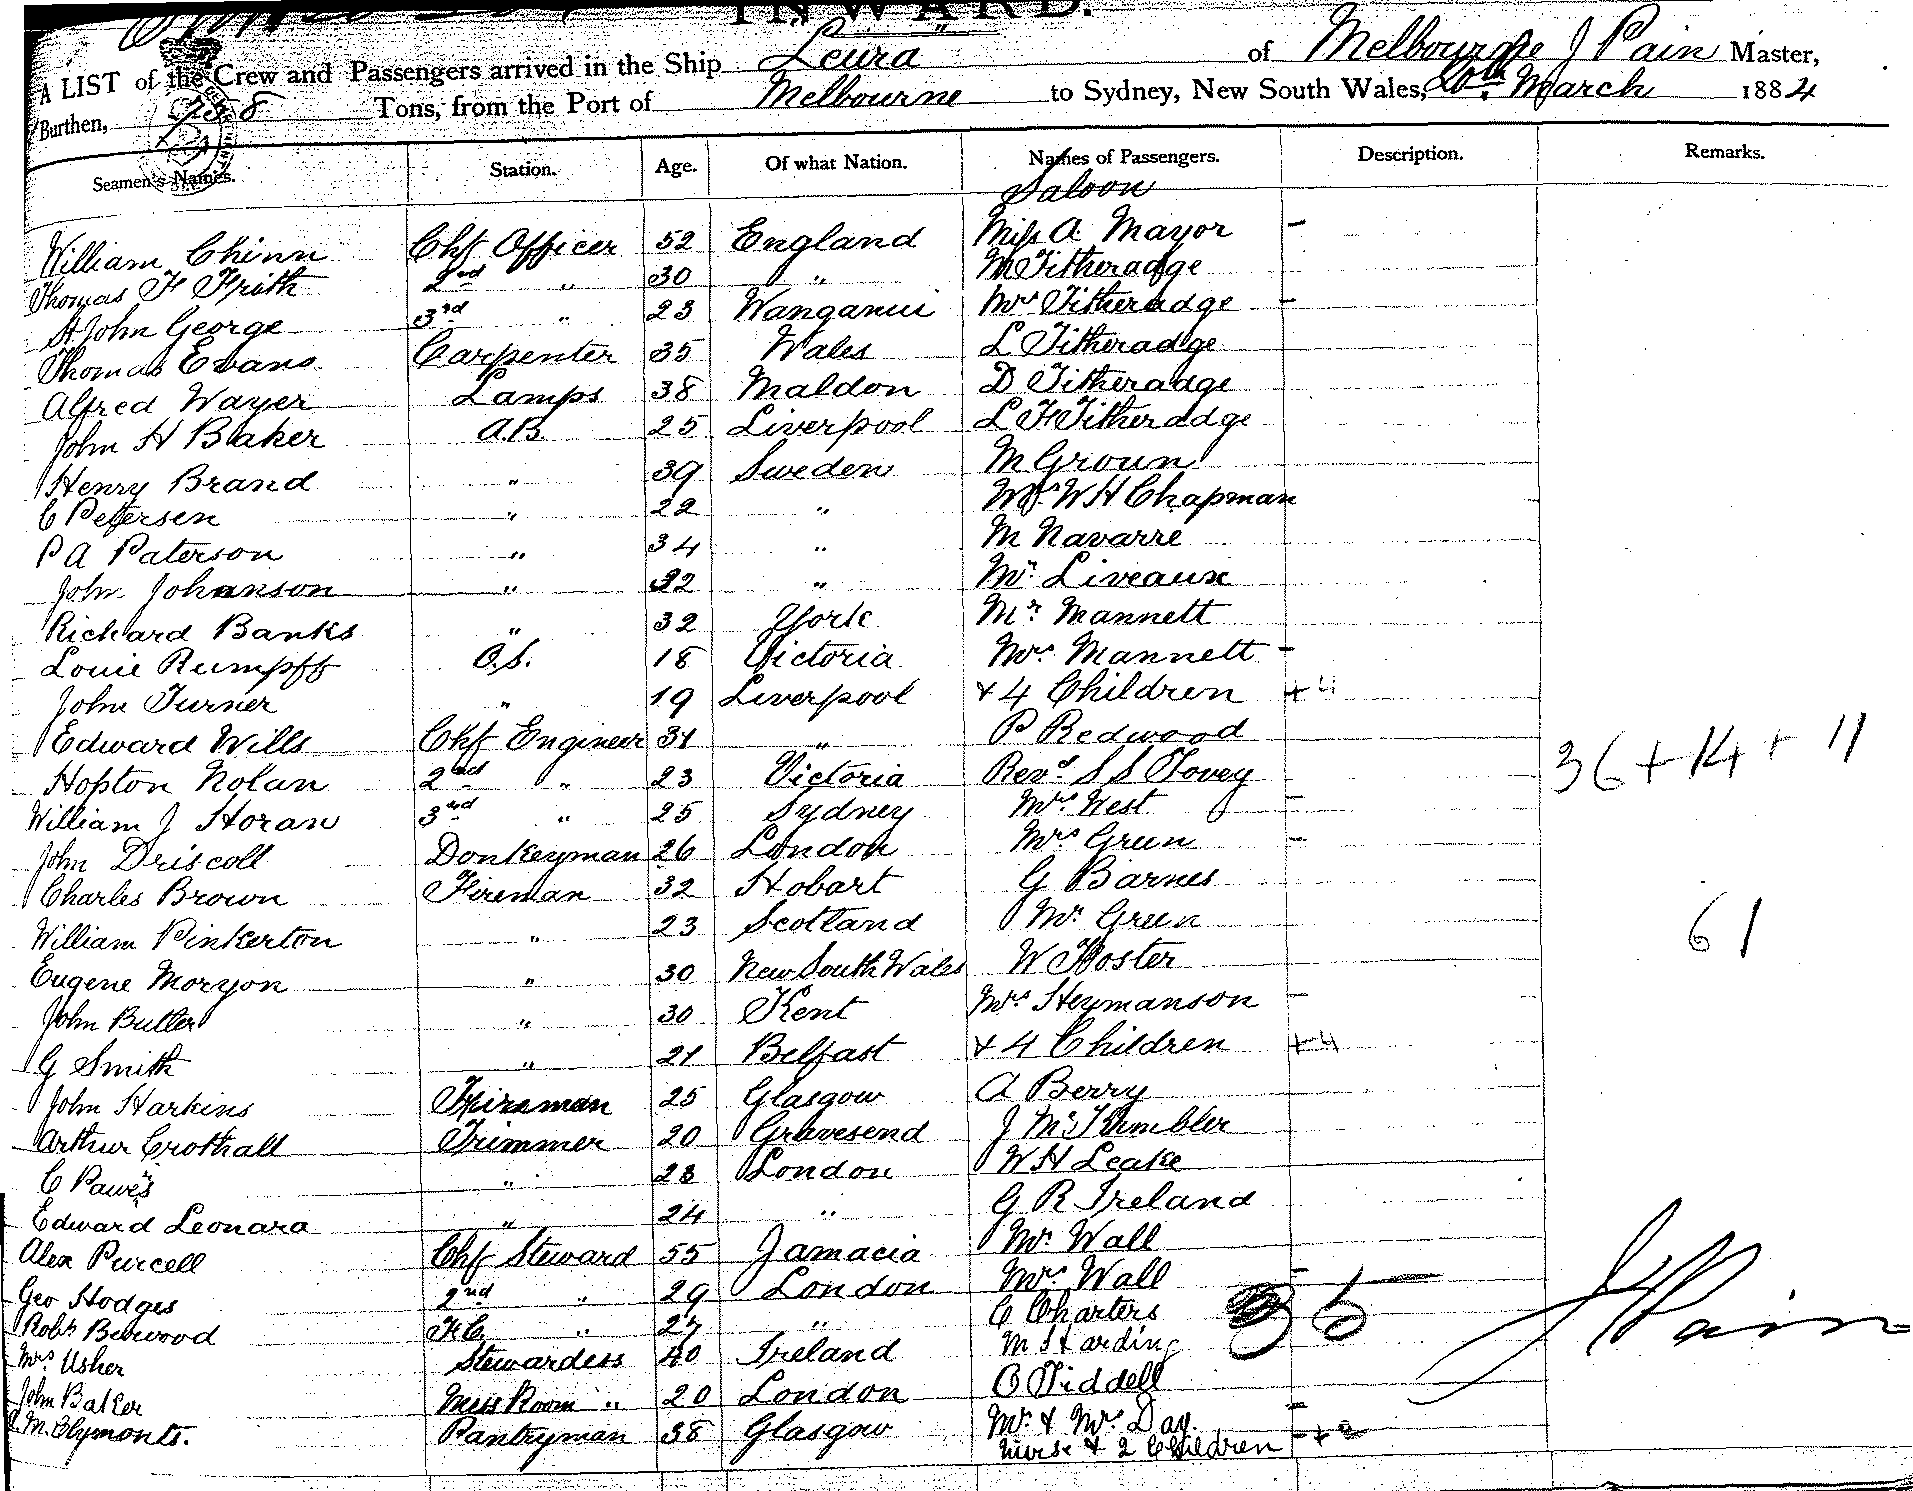 INWARD.
A LIST of the Crew and Passengers arrived in the Ship Leura of Melbourne J Pain Master,
Burthen, 738 Tons, from the Port of Melbourne to Sydney, New South Wales, March 1884
Seamen's Names. Station. Age. Of what Nation. Names of Passengers. Description. Remarks.
Saloon
William Chinn Chf Officer 52 England Miss A. Mayor -
Thomas F Frith 2nd " 30 " M Titheradge
St John George 3rd " 23 Wanganui Mrs Titheradge -
Thomas Evans Carpenter 35 Wales L Titheradge
Alfred Wayer Lamps 38 Maldon D Titheradge
John H Baker A.B. 25 Liverpool L F Titheradge
Henry Brand " 39 Sweden M Groun
C Petersen " 22 " W H Chapman
P A Paterson " 34 " M Navarre
John Johanson " 32 " Mr Liveaux
Richard Banks " 32 York Mr Mannett
Louie Rumpff O.S. 18 Victoria Mrs Mannett -
John Turner " 19 Liverpool + 4 Children + 4
Edward Wills Chf Engineer 31 " P Redwood
Hopton Nolan 2nd " 23 Victoria Revd S S Tovey 36 + 14 + 11
William J Horan 3rd " 25 Sydney Mrs West -
John Driscoll Donkeyman 26 London Mrs Green -
Charles Brown Fireman 32 Hobart G Barnes
William Pinkerton " 23 Scotland Mr Green 61
Eugene Moryon " 30 New South Wales W Foster
John Butler " 30 Kent Mrs Heymanson -
G Smith " 21 Belfast + 4 Children + 4
John Harkins Fireman 25 Glasgow A Berry
Arthur Crothall Trimmer 20 Gravesend J
C Pawes " 23 London W H Leake
Edward Leonara " 24 " G R Ireland
Alex Purcell Chf Steward 55 Jamacia Mr Wall
Geo Hodges 2nd " 29 London Mrs Wall -
Robt Berwood F.C. " 27 " C Charters 36 J Pain
Mrs Usher Stewardess 40 Ireland M Harding
John Baker Mess Room " 20 London C Tiddell
M. Clymonts. Pantryman 38 Glasgow Mr & Mrs Day -
Nurse & 2 Children - + 2